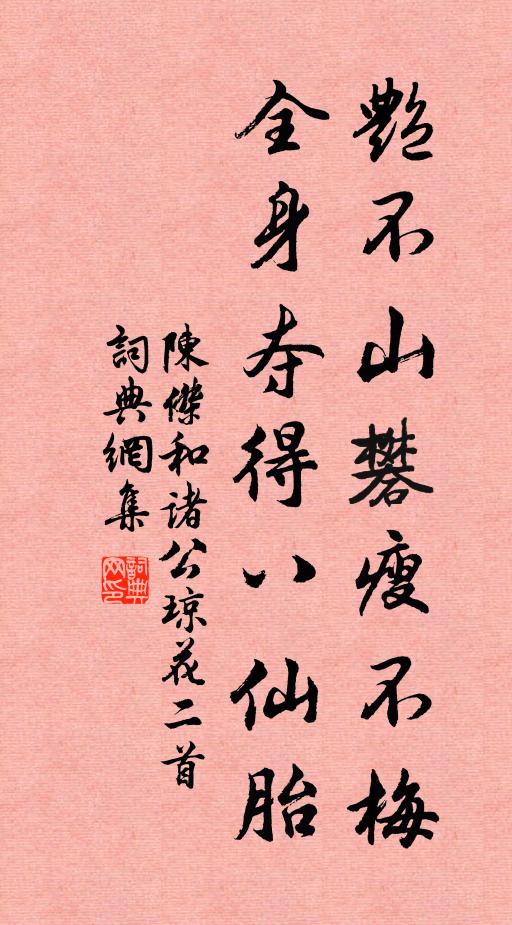 艷不山礬瘦不梅
全身夺得八仙胎
陳傑和诸公琼花二首
詞典網集
詞典网印